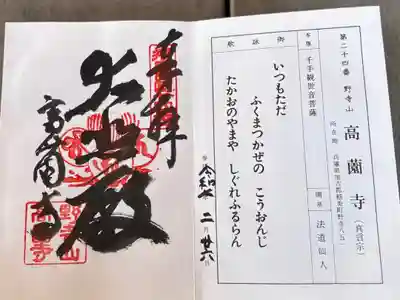 第二十四番 野寺山
高薗寺(真言宗)
所在地 兵庫県加古郡稲美町野寺八五
本尊 千手観世音菩薩
開基 法道仙人
御詠歌
いつもただ
ふくまつかぜの こうおんじ
たかおのやまや しぐれふるらん
令和七 二月 廿六日
奉拝
大悲殿
高薗寺
野寺山
高薗寺